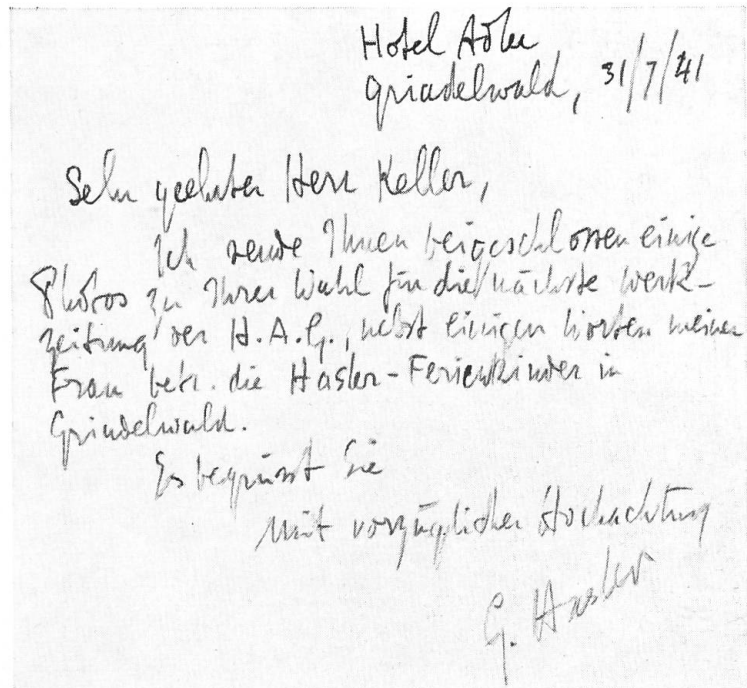 Hotel Adler
Grindelwald, 31/7/41
Sehr geehrter Herr Keller,
Ich sende Ihnen beigeschlossen einige
Photos zu Ihrer Wahl für die nächste Werk-
zeitung der H.A.G., nebst einigen Worten meiner
Frau betr. die Hasler-Ferienkinder in
Grindelwald.
Es begrüsst Sie
mit vorzüglicher Hochachtung
G. Hasler